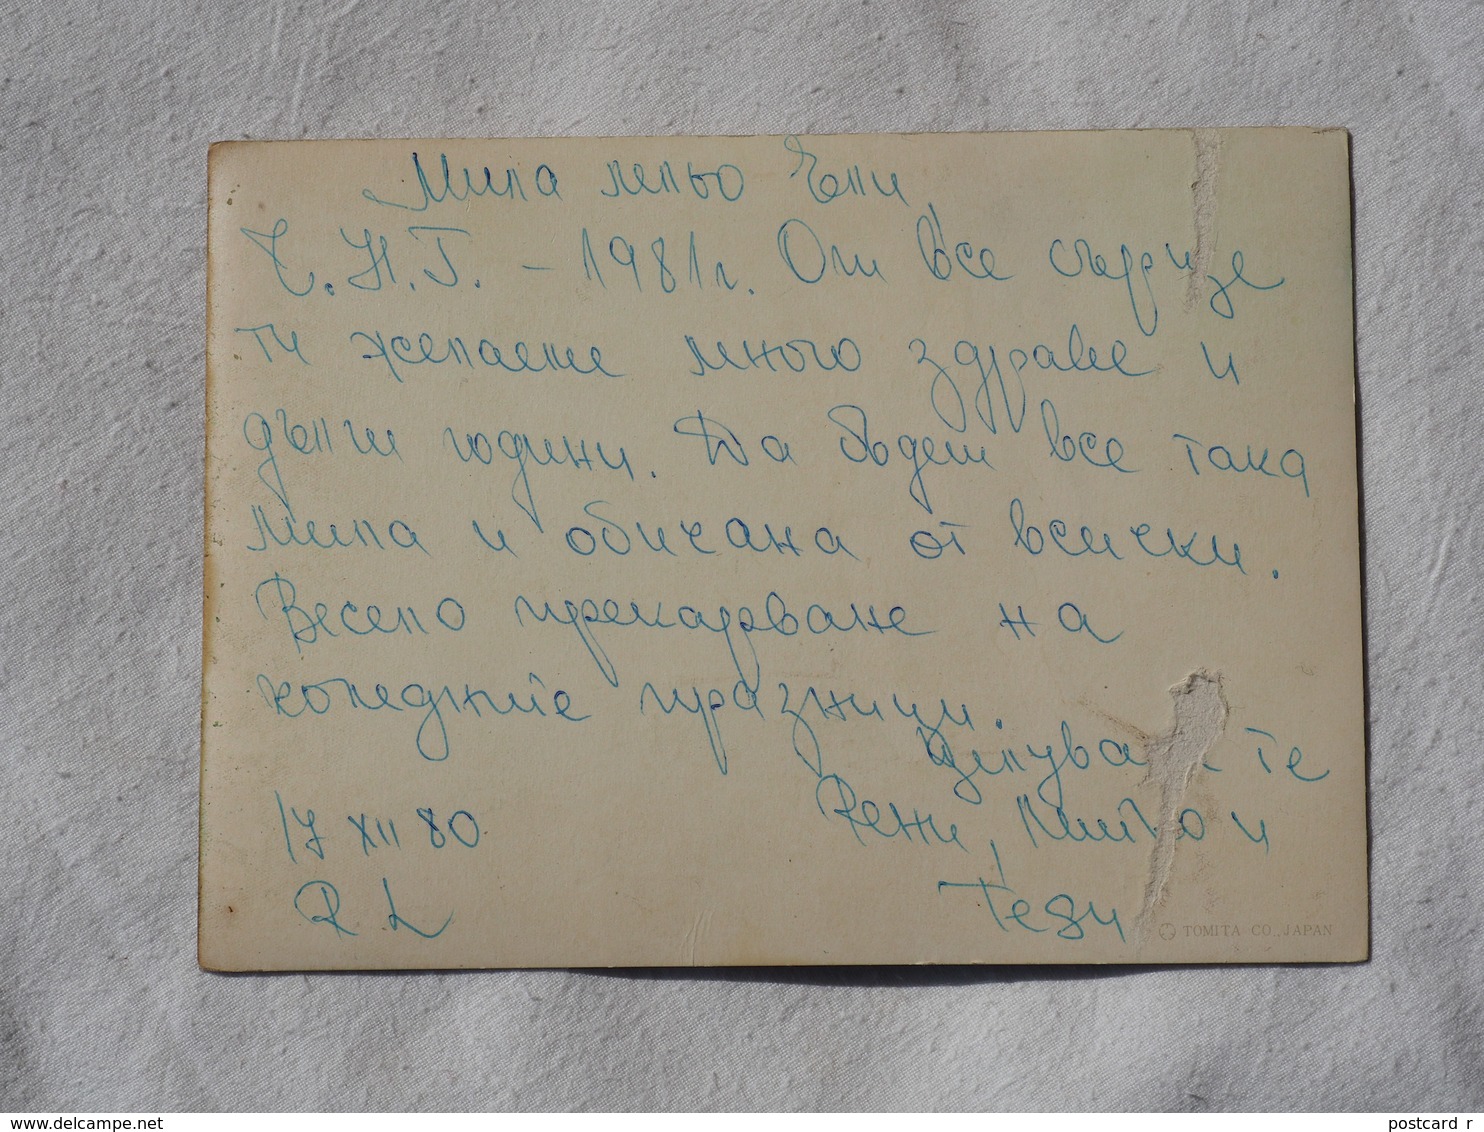 Мила лельо Ели,
Ч.Н.Г. – 1981г. От все сърце
ти желаеме много здраве и
дълги години. Да бъдеш все така
мила и обичана от всички.
Весело прекарване на
коледните празници.
Целува те
17 XII 80 Рени, Митко и
R. L Тези
TOMITA CO., JAPAN
www.delcampe.net
postcard r